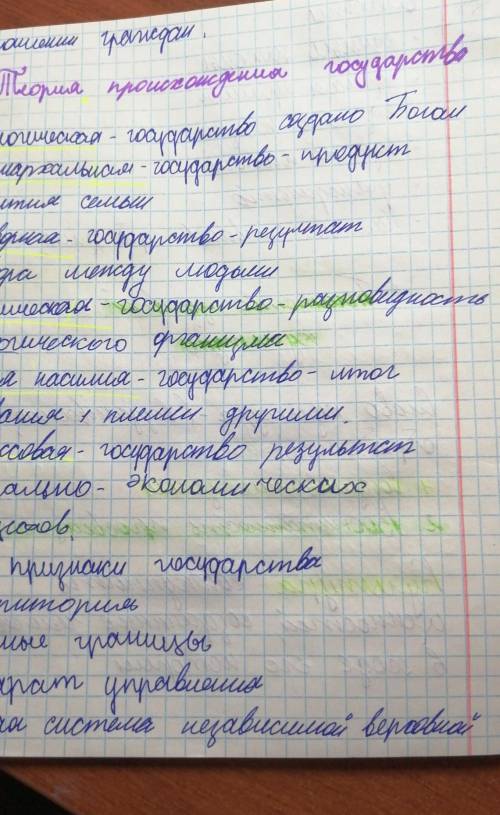 ошении граждан.
Теория происхождения государство
логическая - государство создано Богом
иархальная - государство - продукт
ития семьи
ворная - государство - результат
ора между людьми
ническая - государство - разновидность
логического организма
ия насилия - государство - итог
вания 1 племени другими.
ссовая - государство результат
иально - экономических
цессов.
признаки государства
рритория
ные границы
парат управления
ная система независимой верховной